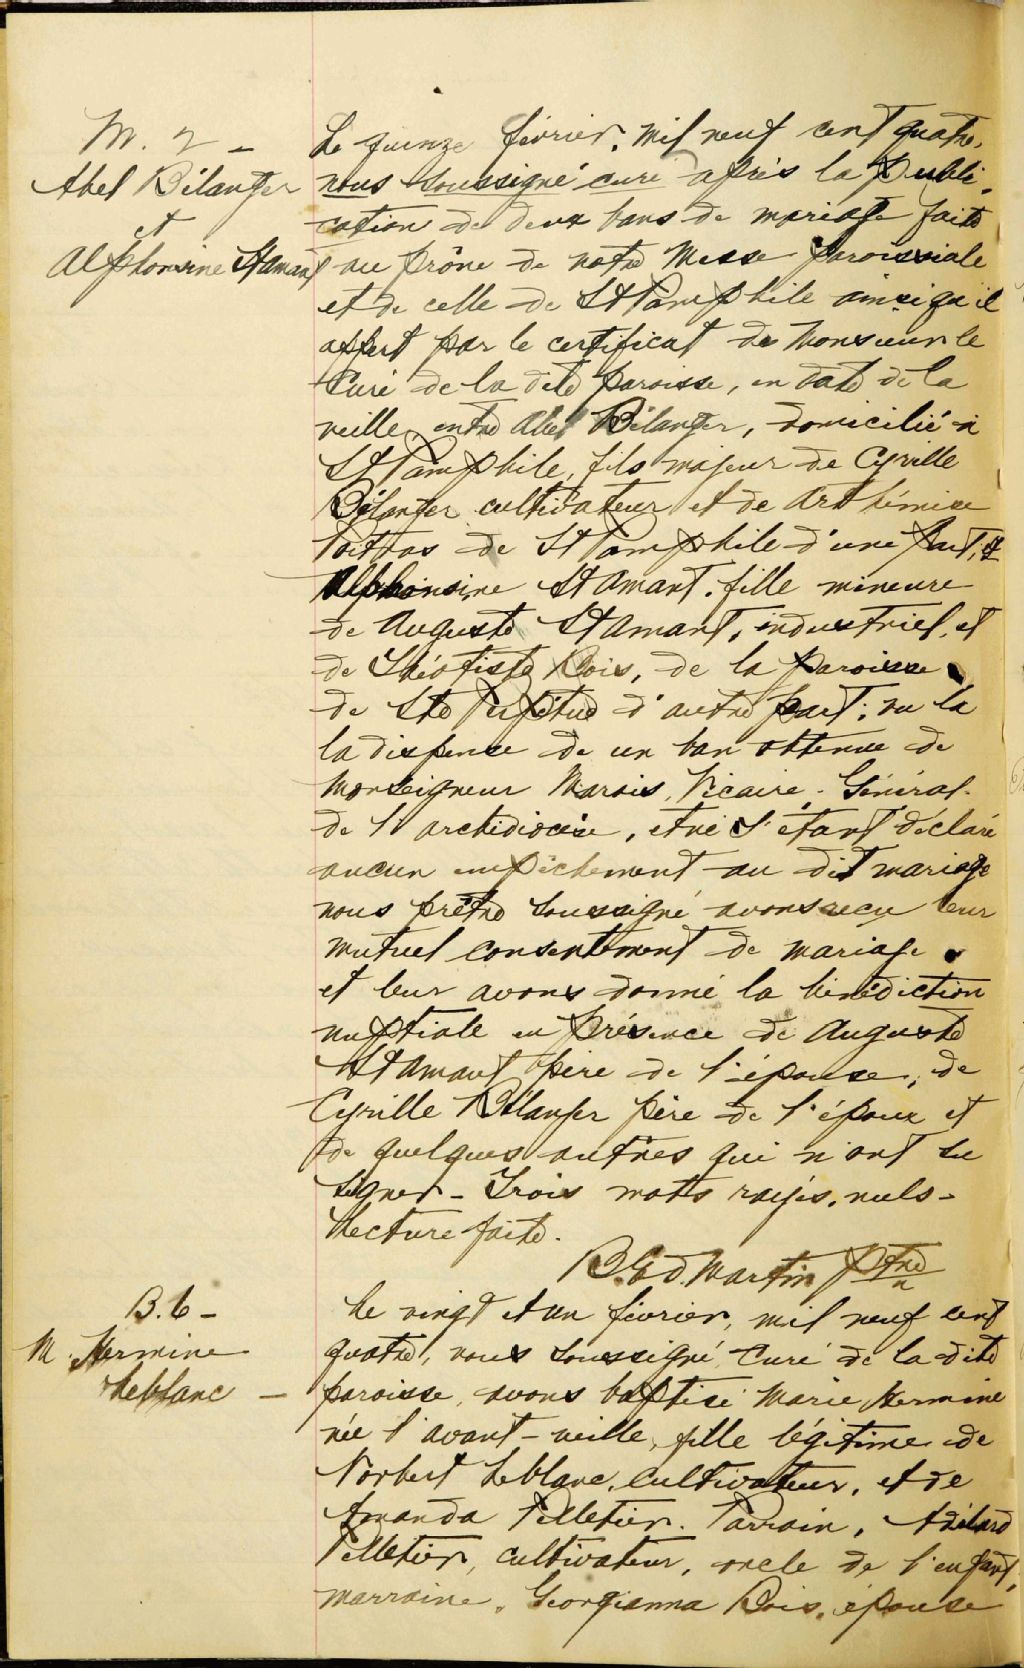 M. 2 -
Abel Bélanger
et
Alphonsine St Amant
Le quinze février, mil neuf cent quatre,
nous soussigné curé après la publi-
cation de deux bans de mariage faite
au prône de notre Messe paroissiale
et de celle de St Pamphile ainsi qu'il
appert par le certificat de Monsieur le
Curé de la dite paroisse, en date de la
veille, entre Abel Bélanger, domicilié à
St Pamphile, fils majeur de Cyrille
Bélanger cultivateur et de Arthémise
Poitras de St Pamphile d'une part, et
Alphonsine St Amant, fille mineure
de Auguste St Amant, industriel, et
de Théotiste Bois, de la paroisse
de Ste Perpétue d'autre part; vu la
la dispense de un ban obtenue de
Monseigneur Marois, Vicaire-Général
de l'archidiocèse, et ne s'étant déclaré
aucun empêchement au dit mariage
nous prêtre soussigné avons reçu leur
mutuel consentement de mariage
et leur avons donné la bénédiction
nuptiale en présence de Auguste
St Amant père de l'épouse, de
Cyrille Bélanger père de l'époux et
de quelques autres qui n'ont su
signer - Trois mots rayés, nuls -
Lecture faite.
B. Ed. Martin Ptre
B. 6 -
M. Hermine
Leblanc -
Le vingt et un février, mil neuf cent
quatre, nous soussigné, Curé de la dite
paroisse, avons baptisé Marie Hermine
née l'avant-veille, fille légitime de
Norbert Leblanc, cultivateur, et de
Amanda Pelletier. Parrain, Adélard
Pelletier, cultivateur, oncle de l'enfant,
marraine, Georgianna Bois, épouse